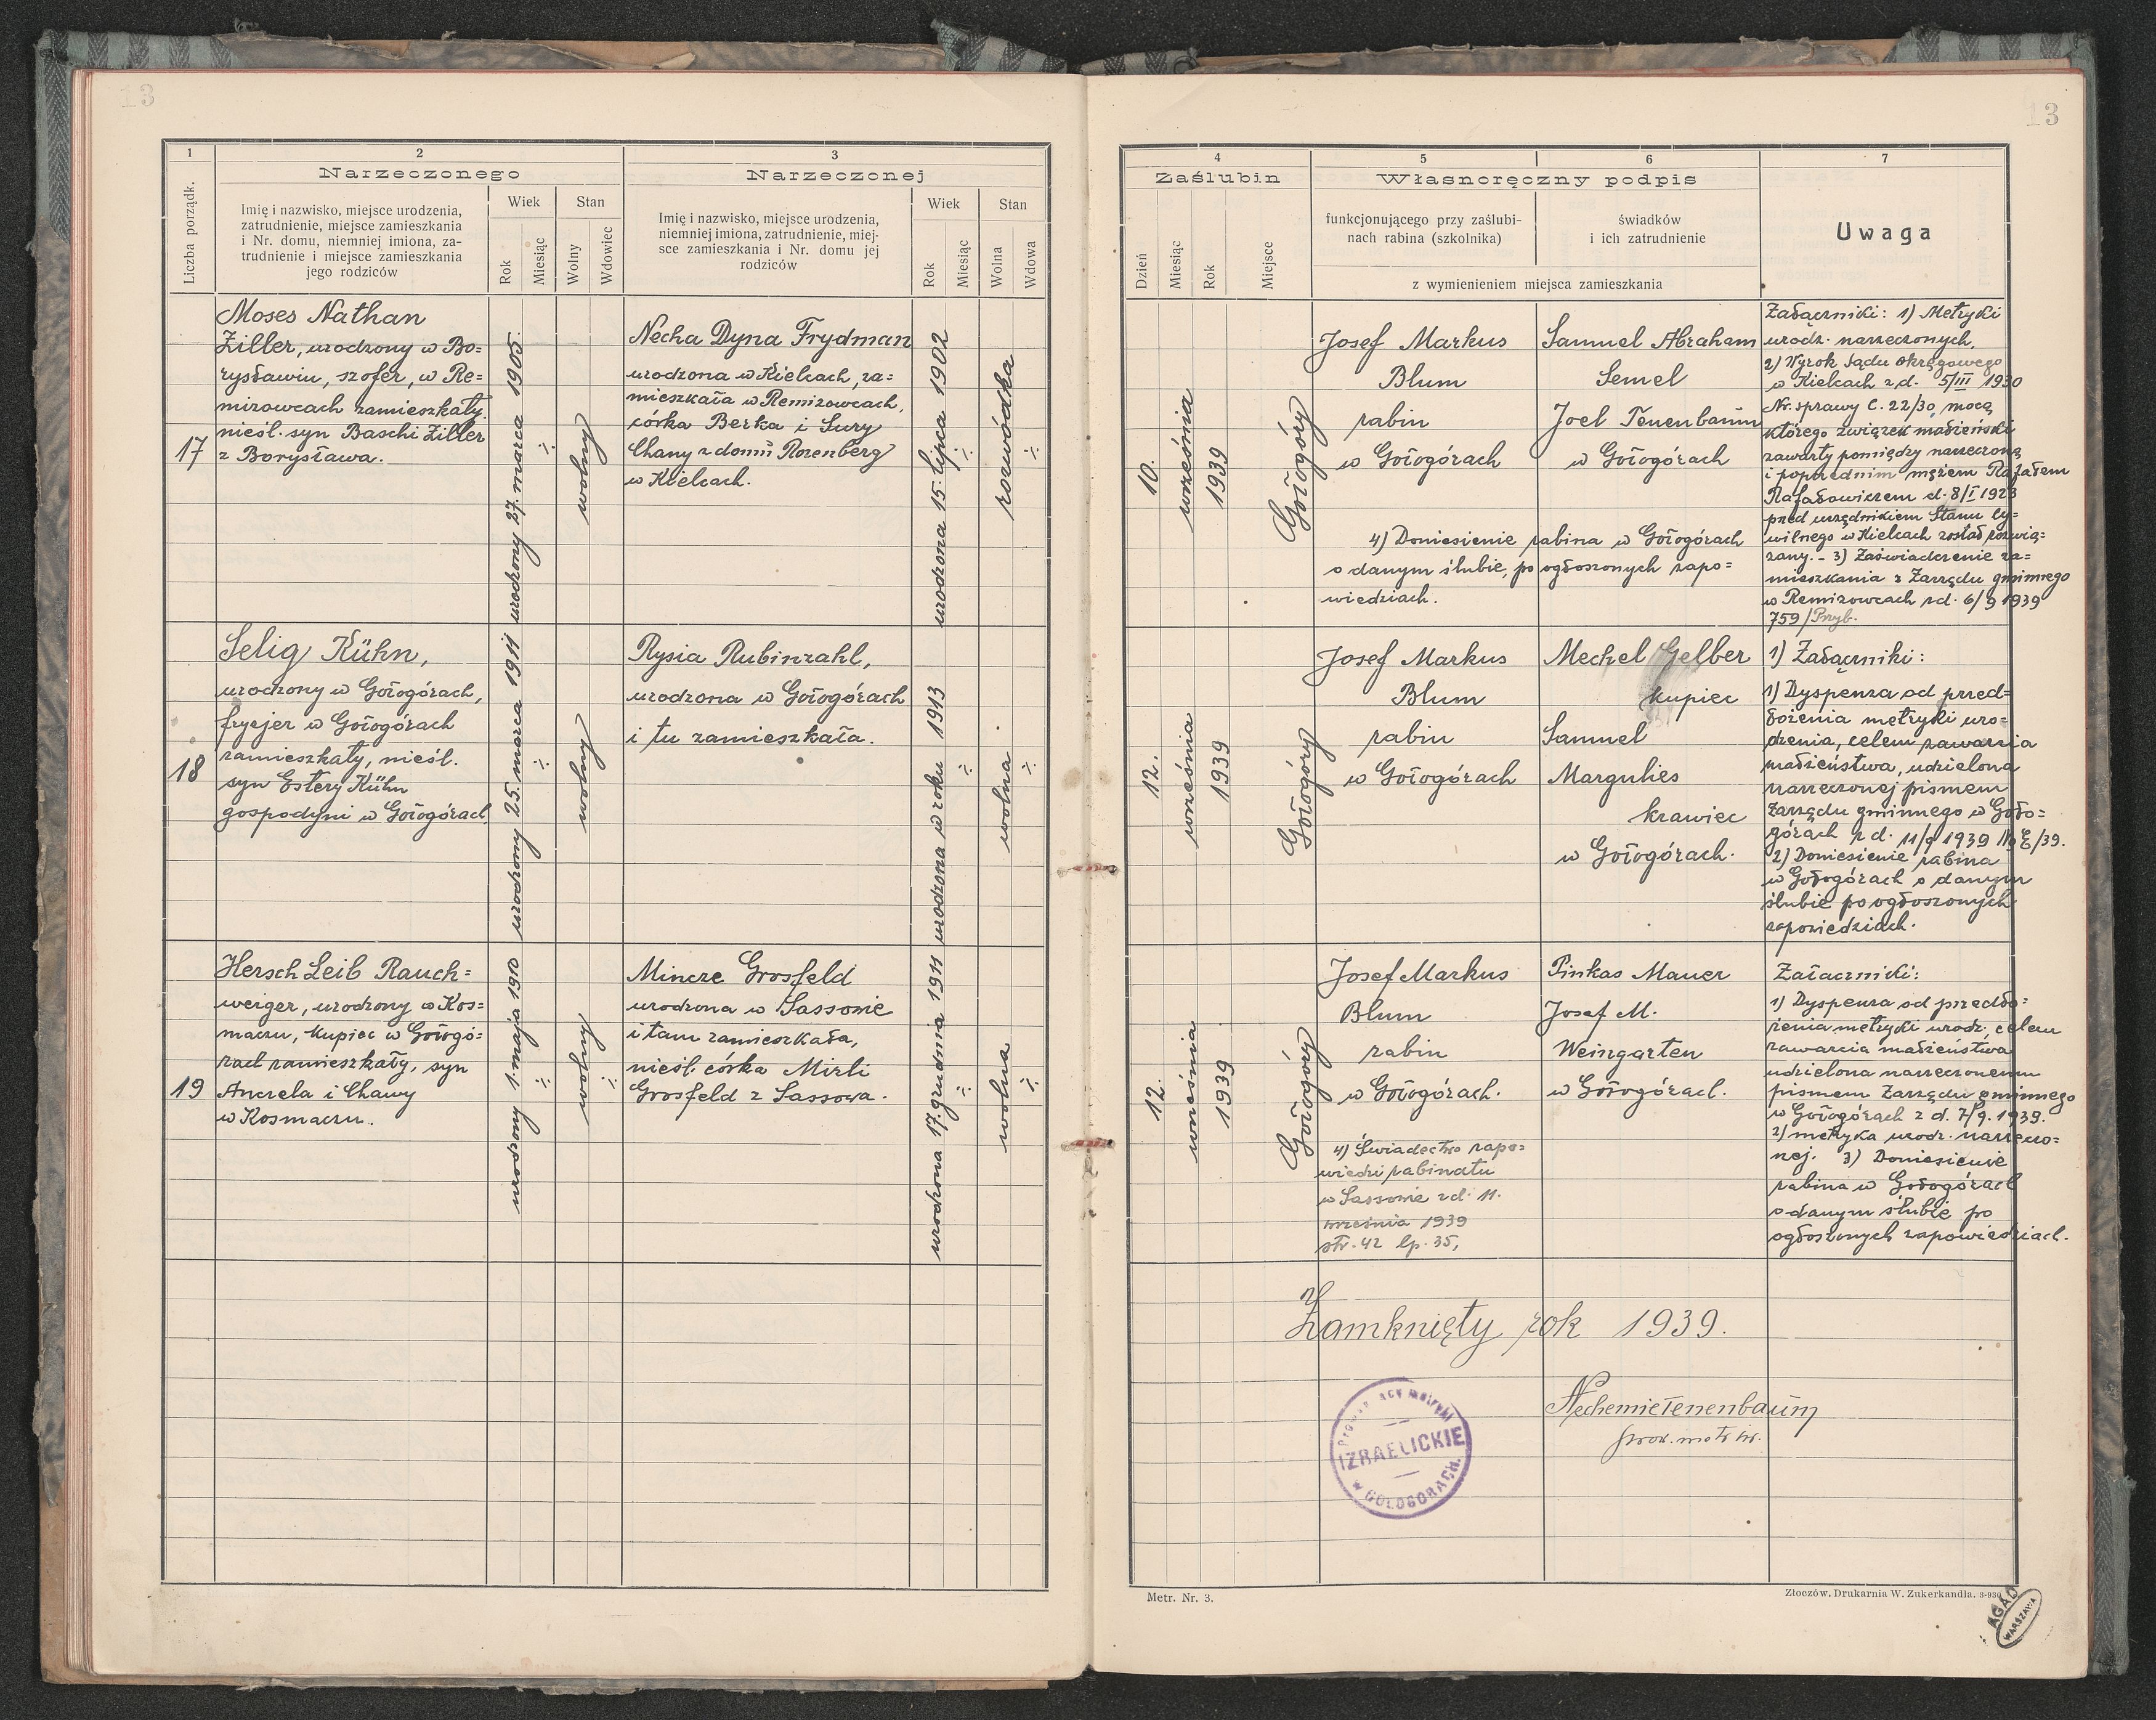 13
1
2
3
Narzeczonego
Narzeczonej
Liczba porządk.
Imię i nazwisko, miejsce urodzenia,
zatrudnienie, miejsce zamieszkania
i Nr. domu, niemniej imiona, za-
trudnienie i miejsce zamieszkania
jego rodziców
Wiek
Rok
Miesiąc
Stan
Wolny
Wdowiec
Imię i nazwisko, miejsce urodzenia,
niemniej imiona, zatrudnienie, miej-
sce zamieszkania i Nr. domu jej
rodziców
Wiek
Rok
Miesiąc
Stan
Wolna
Wdowa
17
Moses Nathan
Ziller, urodzony w Bo=
rysławiu, szofer, w Re=
mizowcach zamieszkały.
nieśl. syn Baschi Ziller
z Borysława.
urodzony 27. marca 1905.
wolny
Necha Dyna Frydman
urodzona w Kielcach, za=
mieszkała w Remizowcach,
córka Berka i Sury
Chany z domu Rozenberg
w Kielcach.
urodzona 15. lipca 1902
rozwódka
18
Selig Kühn,
urodzony w Gołogórach,
fryzjer w Gołogórach
zamieszkały, nieśl.
syn Estery Kühn
gospodyni w Gołogórach
urodzony 25. marca 1911
wolny
Rysia Rubinzahl,
urodzona w Gołogórach
i tu zamieszkała.
urodzona w roku 1913
wolna
19
Hersch Leib Rauch=
weiger, urodzony w Kos=
maczu, kupiec w Gołogó=
rach zamieszkały, syn
Anczela i Chawy
w Kosmaczu.
urodzony 1. maja 1910
wolny
Mincze Grosfeld
urodzona w Sassowie
i tam zamieszkała,
nieśl. córka Mirli
Grosfeld z Sassowa.
urodzona 17. grudnia 1911
wolna
13
4
5
6
7
Zaślubin
Własnoręczny podpis
Uwaga
Dzień
Miesiąc
Rok
Miejsce
funkcjonującego przy zaślubi-
nach rabina (szkolnika)
świadków
i ich zatrudnienie
z wymienieniem miejsca zamieszkania
10.
września
1939
Gołogóry
Josef Markus
Blum
rabin
w Gołogórach
Samuel Abraham
Semel
Joel Tenenbaum
w Gołogórach
4) Doniesienie rabina w Gołogórach
o danym ślubie, po ogłoszonych zapo=
wiedziach.
Załączniki: 1) Metryki
urodz. narzeczonych,
2) Wyrok Sądu Okręgowego
w Kielcach z d. 5/III 1930
Nr. sprawy C. 22/30, mocą
którego związek małżeński
zawarty pomiędzy narzeczoną
i poprzednim mężem Rafałem
Rafałowiczem d. 8/I 1923
przed urzędnikiem Stanu Cy=
wilnego w Kielcach został rozwią=
zany. - 3) Zaświadczenie za=
mieszkania z Zarządu gminnego
w Remizowcach z d. 6/9 1939
759/Przyb.
12.
września
1939
Gołogóry
Josef Markus
Blum
rabin
w Gołogórach
Mechel Gelber
kupiec
Samuel
Margulies
krawiec
w Gołogórach.
1) Załączniki:
1) Dyspenza od przed=
łożenia metryki uro=
dzenia, celem zawarcia
małżeństwa, udzielona
narzeczonej pismem
Zarządu gminnego w Goło=
górach z d. 11/9 1939
2) Doniesienie rabina
w Gołogórach o danym
ślubie po ogłoszonych
zapowiedziach.
12.
września
1939
Gołogóry
Josef Markus
Blum
rabin
w Gołogórach.
Pinkas Mauer
Josef M.
Weingarten
w Gołogórach.
4) Świadectwo zapo=
wiedzi rabinatu
w Sassowie z d. 11.
września 1939
str. 42 lp. 35,
Załączniki:
1) Dyspenza od przedło=
żenia metryki urodz. celem
zawarcia małżeństwa
udzielona narzeczonemu
pismem Zarządu gminnego
w Gołogórach z d. 7/9. 1939.
2) metryka urodz. narzeczo=
nej. 3) Doniesienie
rabina w Gołogórach
o danym ślubie po
ogłoszonych zapowiedziach.
Zamknięty rok 1939.
IZRAELICKIE
GOŁOGÓRACH.
Nechemie Tenenbaum
prow. metr. izr.
Metr. Nr. 3.
Złoczów, Drukarnia W. Zukerkandla. 3-930
AGAD
WARSZAWA